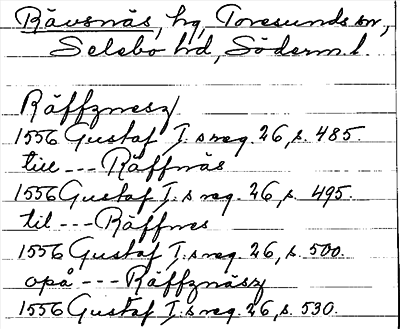 Rävsnäs, hg, Toresunds sn,
Selebo hd, Söderm.l.
Räffznesz
1556 Gustaf I:s reg. 26, s. 485.
till --- Räffnäs
1556 Gustaf I:s reg. 26, s. 495.
til --- Räffnes
1556 Gustaf I:s reg. 26, s. 500.
opå --- Räffznäsz
1556 Gustaf I:s reg. 26, s. 530.